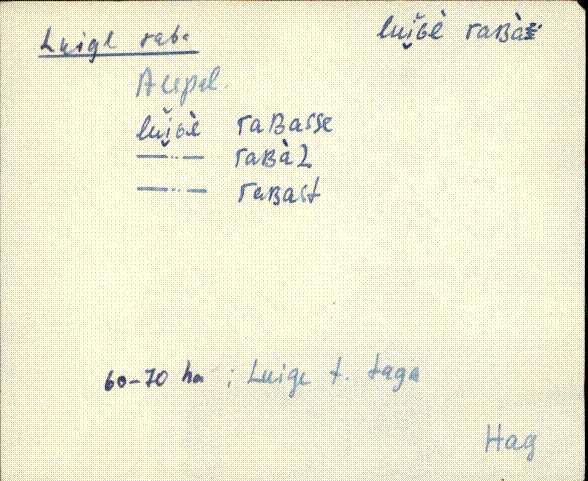 Luige raba
luiɢè raʙà
Aupal.
luiɢè raʙasse
—··— raʙàz
—··— raʙast
60-70 ha ; Luige t. taga
Hag